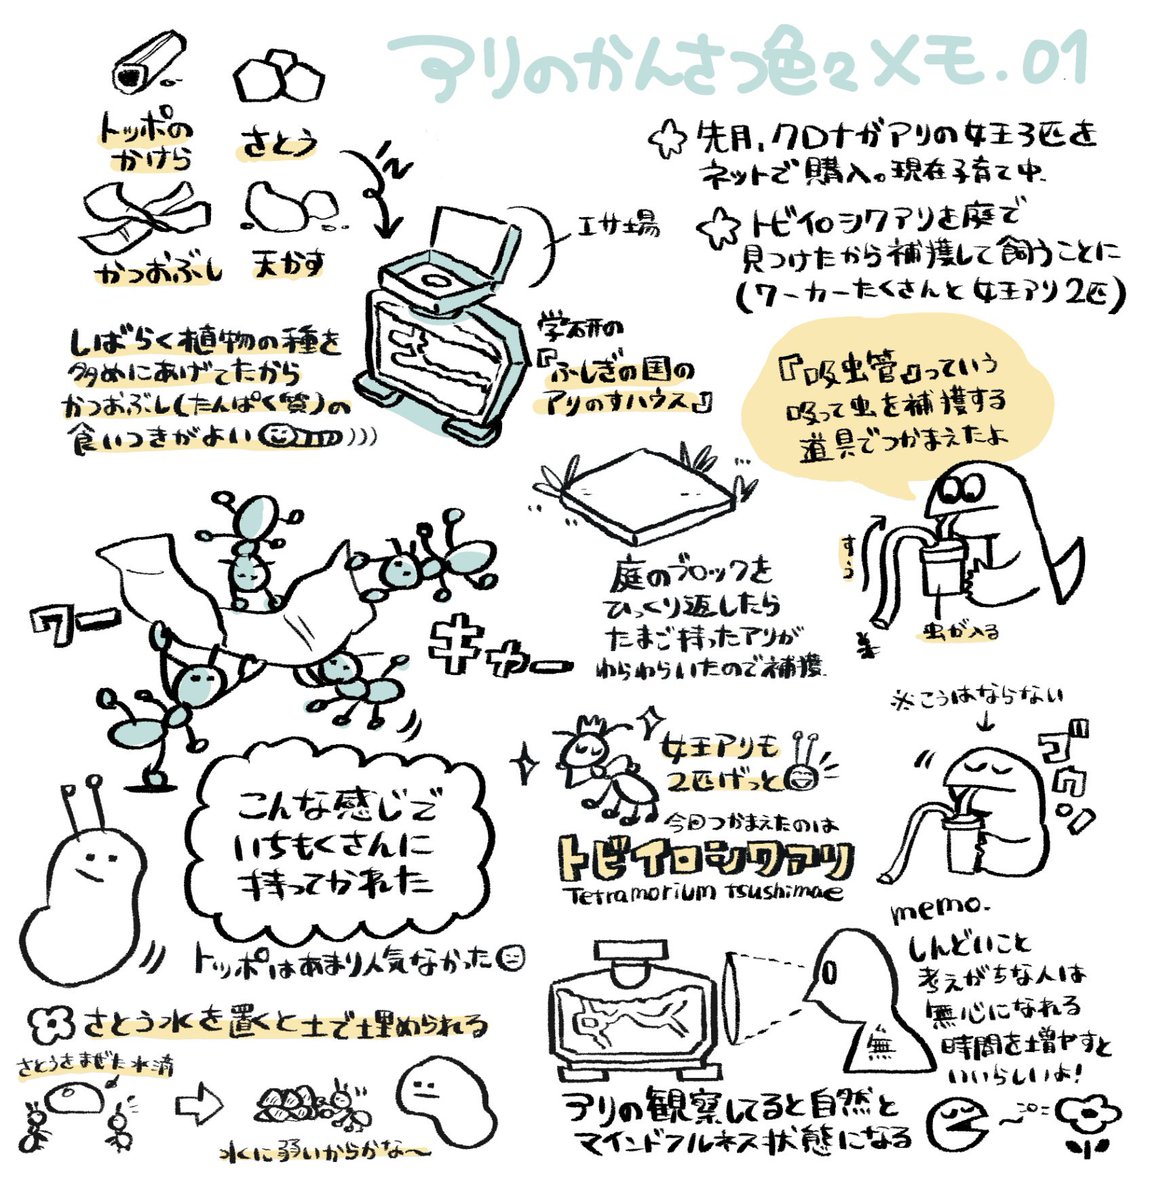 アリのかんさつ色々メモ.01
トッポの
かけら
さとう
かつおぶし
天かす
エサ場
☆ 先月、クロナガアリの女王3匹を
ネットで購入。現在子育て中。
☆ トビイロシワアリを庭で
見つけたから補獲して飼うことに
(ワーカーたくさんと女王アリ2匹)
しばらく植物の種を
多めにあげてたから
かつおぶし(たんぱく質)の
食いつきがよい
学研の
『ふしぎの国の
アリのすハウス』
『吸虫管』っていう
吸って虫を補獲する
道具でつかまえたよ
すう
虫が入る
庭のブロックを
ひっくり返したら
たまご持ったアリが
わらわらいたので補獲
ワー
キャー
こんな感じで
いちもくさんに
持ってかれた
トッポはあまり人気なかった
女王アリも
2匹げっと
今回つかまえたのは
トビイロシワアリ
Tetramorium tsushimae
※こうはならない
ゴクン
さとう水を置くと土で埋められる
さとうをまぜた水滴
水に弱いからかな〜
無
memo.
しんどいこと
考えがちな人は
無心になれる
時間を増やすと
いいらしいよ!
アリの観察してると自然と
マインドフルネス状態になる